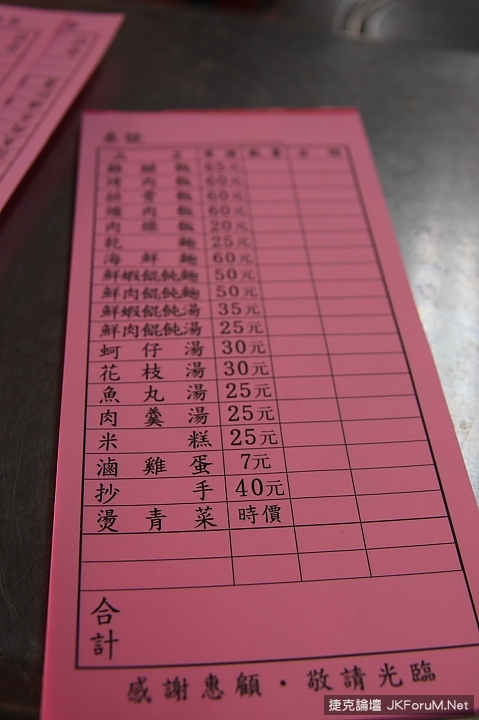 桌號
品名 單價 數量 金額
雞腿飯 65元
烤肉飯 60元
排骨飯 60元
爌肉飯 60元
肉燥飯 20元
乾麵 25元
海鮮麵 60元
鮮蝦餛飩麵 50元
鮮肉餛飩麵 50元
鮮蝦餛飩湯 35元
鮮肉餛飩湯 25元
蚵仔湯 30元
花枝湯 30元
魚丸湯 25元
肉羹湯 25元
米糕 25元
滷雞蛋 7元
抄手 40元
燙青菜 時價
合計
感謝惠顧・敬請光臨
捷克論壇 JKForuM.Net